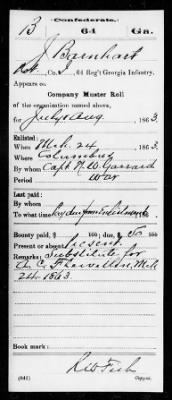 Confederate.
B 64 Ga.
J Barnhart
Co. 64 Reg't Georgia Infantry.
Appears on
Company Muster Roll
of the organization named above,
for July & Aug, 1863.
Enlisted:
When Mch. 24, 1863.
Where Columbus
By whom Capt. R. W. Garrard
Period War
Last paid:
By whom
To what time pay due from Enlistment
Bounty paid $ 100; due, $ 100
Present or absent Present
Remarks: Substitute for
A. C. Mch
24 1863.
Book mark:
(641) Copyist.